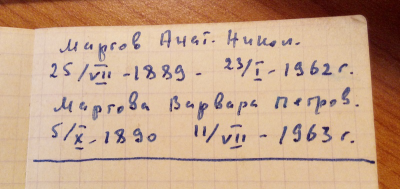 Маргов Анат. Никол.
25/VII - 1889 - 23/I - 1962 г.
Маргова Варвара Петров.
5/X - 1890 11/VII - 1963 г.